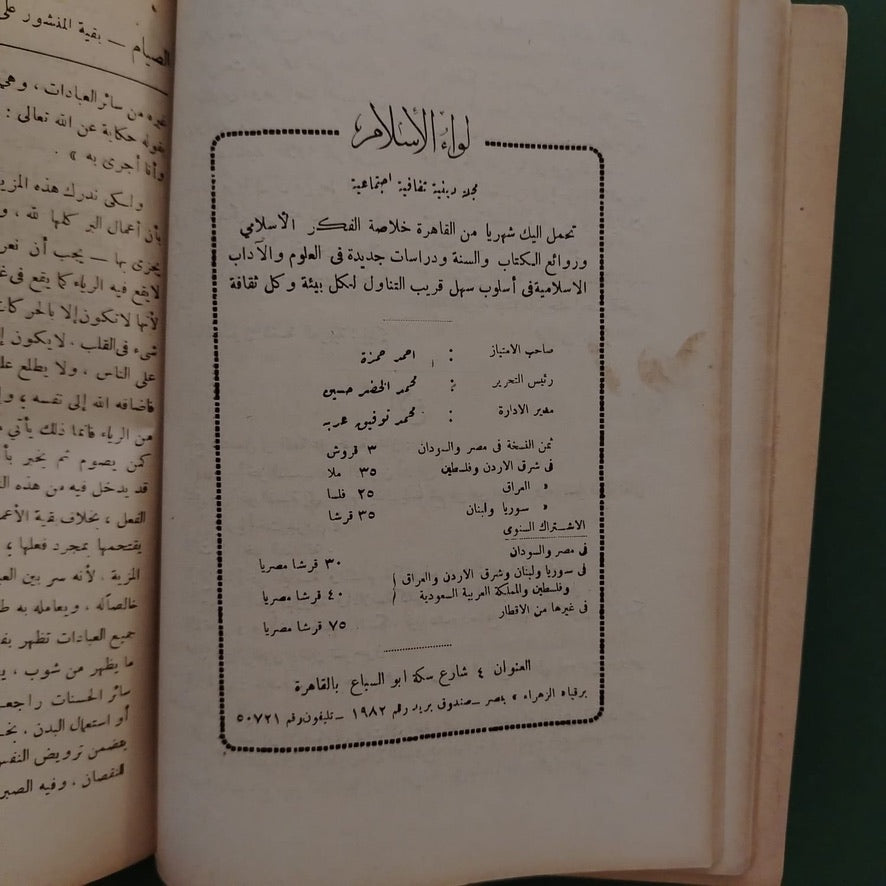 الصيام — بقية المنشور على
غيره من سائر العبادات ، وهي
بقوله حكاية عن الله تعالى :
وأنا أجزى به » .
ولكى ندرك هذه المزية
بأن أعمال البر كلها لله ، و
يجزى بها — يجب أن نعر
لا يقع فيه الرياء كما يقع فى غ
لأنها لا تكون إلا بالحركات
شىء فى القلب . لا يكون إ
على الناس ، ولا يطلع عل
فأضافه الله إلى نفسه ، و
من الرياء فانما ذلك يأتي م
كمن يصوم ثم يخبر بأ
قد يدخل فيه من هذه ال
الفعل ، بخلاف بقية الأعم
يقتحمها بمجرد فعلها ،
المزية . لأنه سر بين العب
خالصاً له . ويعامله به ط
جميع العبادات تظهر بف
ما يظهر من شوب ، ي
سائر الحسنات راجعـ
أو استعمال البدن . بخـ
بعضمن ترويض النفس
النقصان . وفيه الصبر
لواء الإسلام
مجلة دينية ثقافية اجتماعية
تحمل اليك شهريا من القاهرة خلاصة الفكر الأسلامي
وروائع الكتاب والسنة ودراسات جديدة فى العلوم والآداب
الاسلامية فى أسلوب سهل قريب التناول لكل بيئة وكل ثقافة
صاحب الامتياز : احمد حمزة
رئيس التحرير : محمد الخضر حسين
مدير الادارة : محمد توفيق عويه
ثمن النسخة فى مصر والسودان ٣ قروش
فى شرق الاردن وفلسطين ٣٥ ملا
« العراق ٢٥ فلسا
« سوريا ولبنان ٣٥ قرشا
الاشتراك السنوى
فى مصر والسودان ٣٠ قرشا مصريا
فى سوريا ولبنان وشرق الاردن والعراق
وفلسطين والمملكة العربية السعودية ٤٠ قرشا مصريا
فى غيرها من الاقطار ٧٥ قرشا مصريا
العنوان ٤ شارع سكة ابو السباع بالقاهرة
برقياه الزهراء » بمصر — صندوق بريد رقم ١٩٨٢ — تليفون رقم ٥٠٧٢١